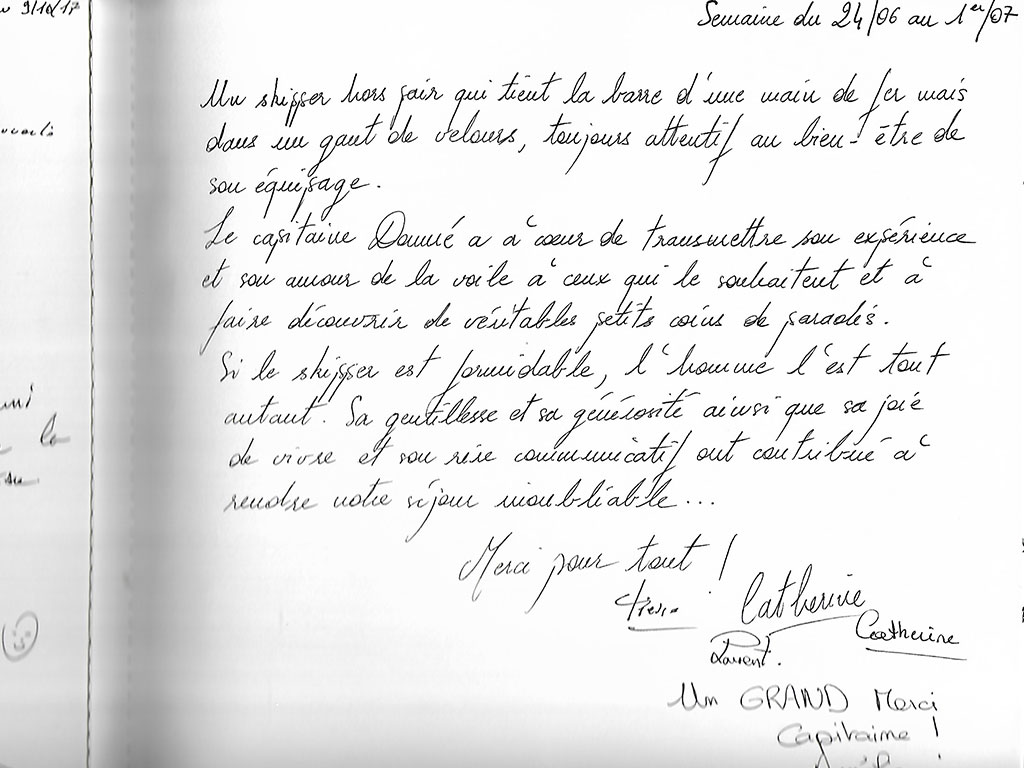 9/10/17
Semaine du 24/06 au 1er/07
Un skipper hors pair qui tient la barre d'une main de fer mais
dans un gant de velours, toujours attentif au bien-être de
son équipage.
Le capitaine Dommé a à coeur de transmettre son expérience
et son amour de la voile à ceux qui le souhaitent et à
faire découvrir de véritables petits coins de paradis.
Si le skipper est formidable, l'homme l'est tout
autant. Sa gentillesse et sa générosité ainsi que sa joie
de vivre et son rire communicatif ont contribué à
rendre notre séjour inoubliable...
la
Merci pour tout !
Catherine
Catherine
Laurent.
Un GRAND Merci
Capitaine !